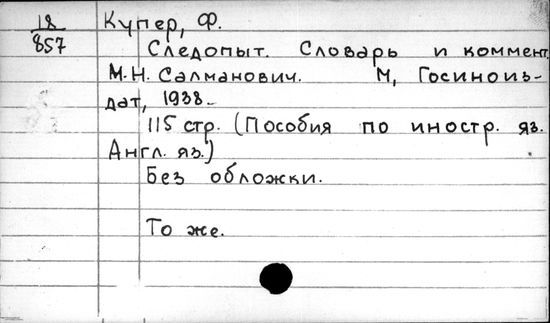 18
857
Купер, Ф.
Следопыт. Словарь и коммент.
М.Н. Салманович. М, Госиноиз-
дат, 1938.
115 стр. (Пособия по иностр. яз.
Англ. яз.)
Без обложки.
То же.